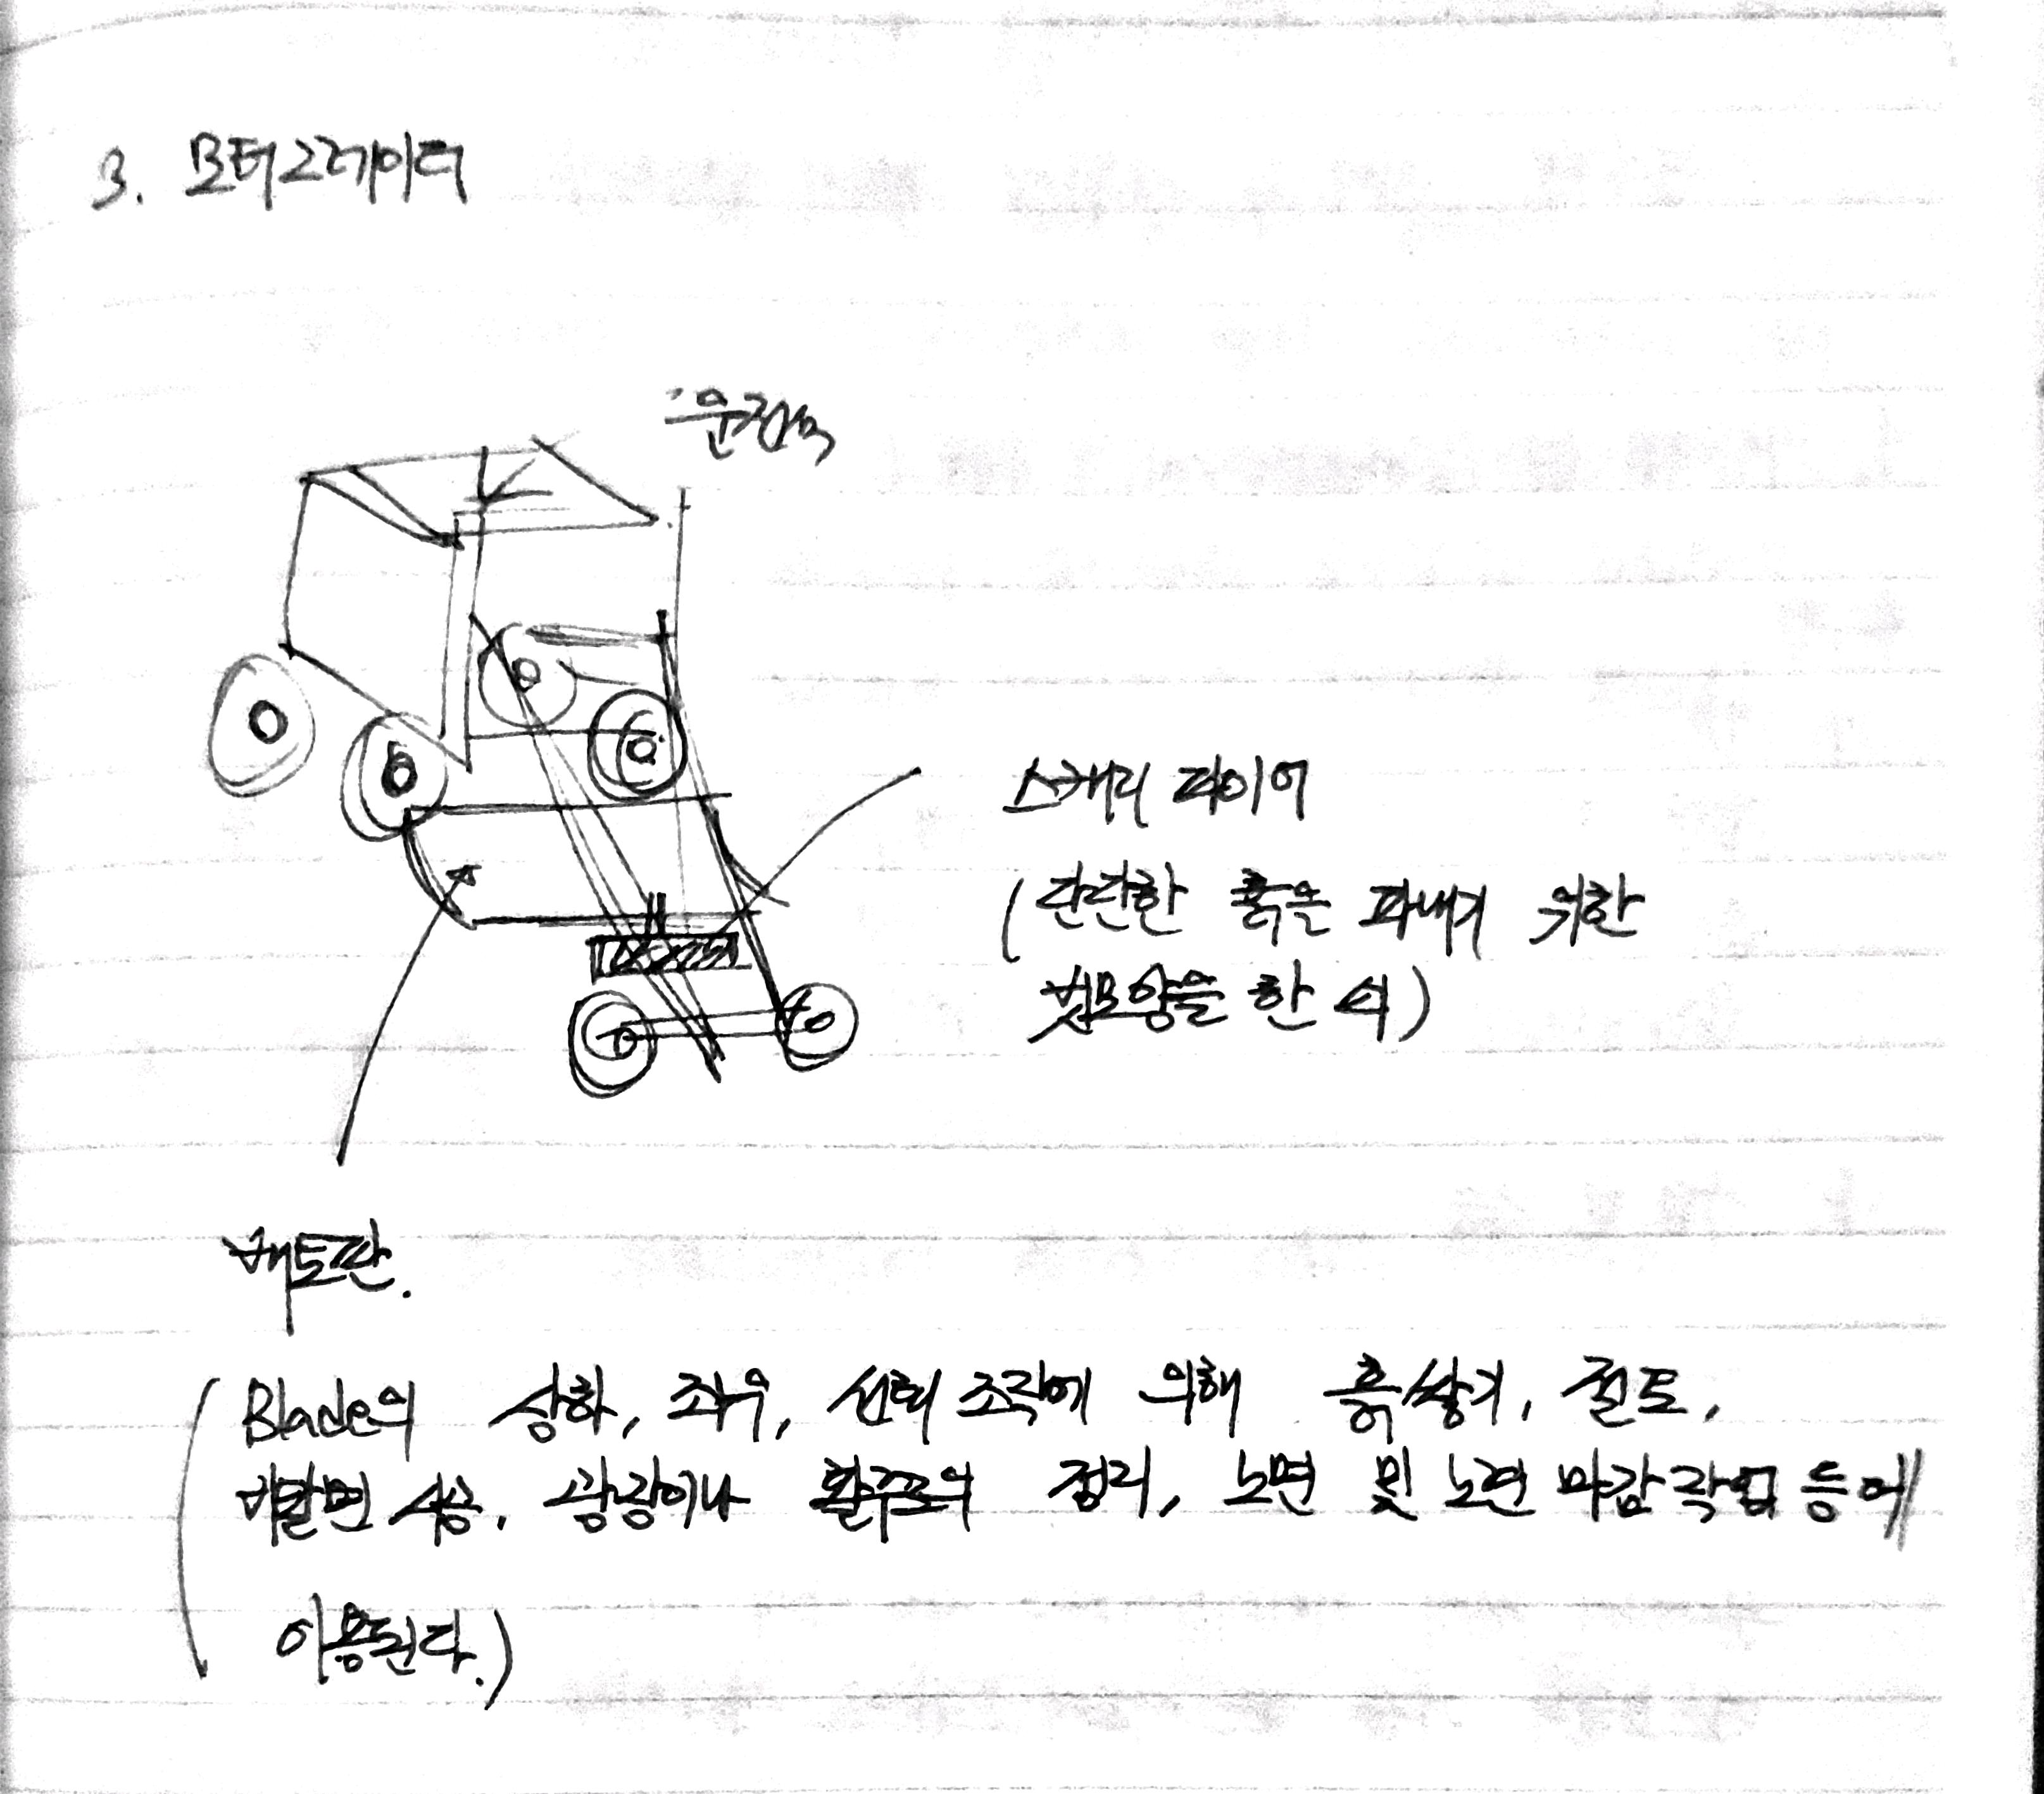 3. 모터그레이더
운전석
스캐리 파이어
(단단한 흙은 파내기 위한
빗모양을 한 쇠)
배토판.
(Blade의 상하, 좌우, 선회 조작에 의해 흙쌓기, 절토,
비탈면 시공, 광장이나 활주로의 정리, 노면 및 노견 마감작업 등에
이용된다.)